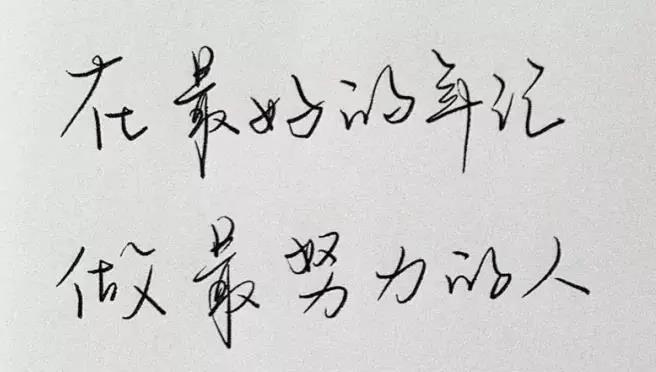 在最好的年纪
做最努力的人